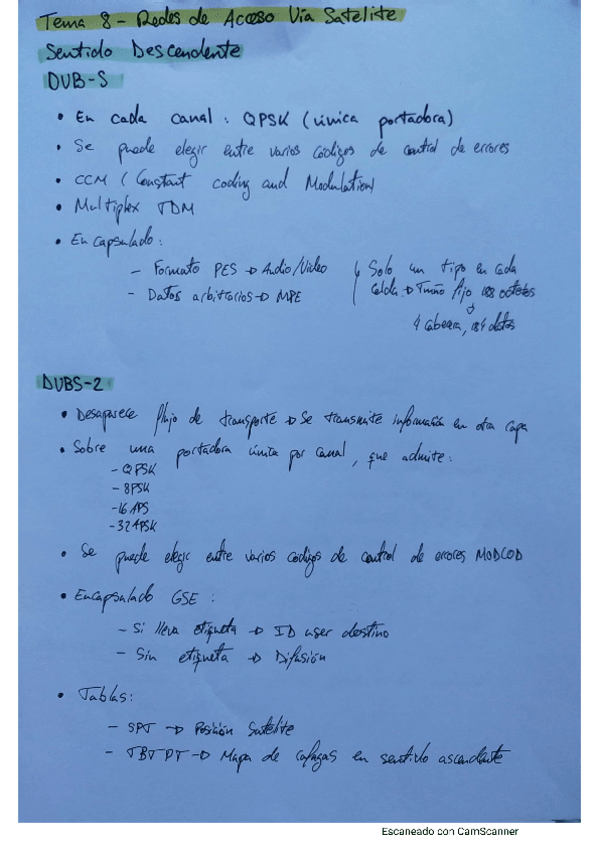 Tema 8 - Redes de Acceso Vía Satelite
Sentido Descendente
DVB-S
• En cada canal : QPSK (única portadora)
• Se puede elegir entre varios códigos de control de errores
• CCM (Constant coding and Modulation)
• Multiplex TDM
• Encapsulado:
- Formato PES → Audio/Video
- Datos arbitrarios → MPE
Solo un tipo en cada
celda → Tmño fijo 188 octetos
4 cabecera, 184 datos
DVBS-2
• Desaparece flujo de transporte → Se transmite información en otra capa
• Sobre una portadora única por canal, que admite:
- QPSK
- 8PSK
- 16APS
- 32APSK
• Se puede elegir entre varios códigos de control de errores MODCOD
• Encapsulado GSE :
- Si lleva etiqueta → ID user destino
- Sin etiqueta → Difusión
• Tablas:
- SPT → Posición Satelite
- TBTPT → Mapa de ráfagas en sentido ascendente
Escaneado con CamScanner